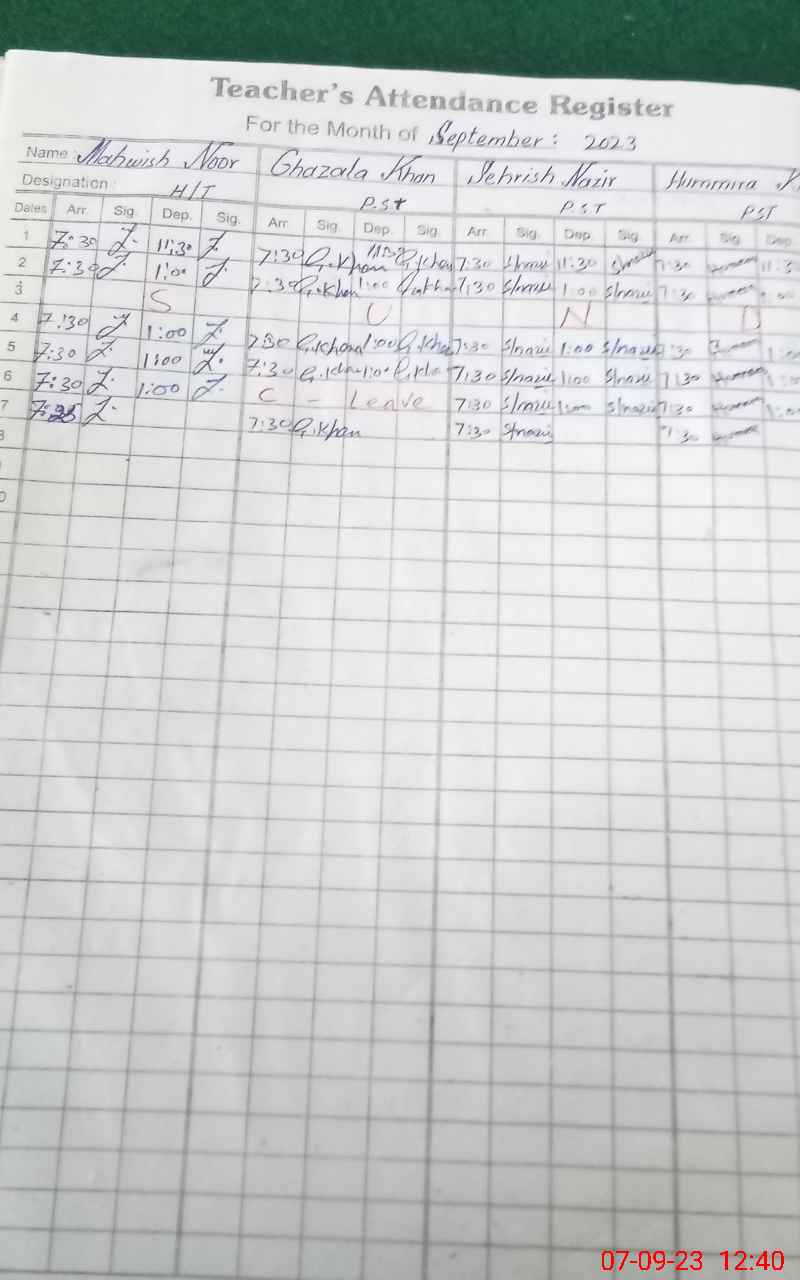 Teacher's Attendance Register
For the Month of September: 2023
Name: Mahwish Noor Ghazala Khan Sehrish Nazir Hummira K
Designation: H/T P.S.T P.S.T PST
Dates Arr. Sig. Dep. Sig. Arr. Sig. Dep. Sig. Arr. Sig. Dep. Sig. Arr. Sig. Dep.
1 7:30 11:30 7:30 G.Khan 11:30 G.Khan 7:30 S/nazir 11:30 S/nazir 7:30 11:3
2 7:30 1:00 7:30 G.Khan 1:00 G.Khan 7:30 S/nazir 1:00 S/nazir 7:30 1:00
3 S U N D
4 7:30 1:00 7:30 G.Khan 1:00 G.Khan 7:30 S/nazir 1:00 S/nazir 7:30 1:00
5 7:30 1:00 7:30 G.Khan 1:00 G.Khan 7:30 S/nazir 1:00 S/nazir 7:30 1:00
6 7:30 1:00 C - Leave 7:30 S/nazir 1:00 S/nazir 7:30 1:00
7 7:30 G.Khan 7:30 S/nazir 7:30
07-09-23 12:40